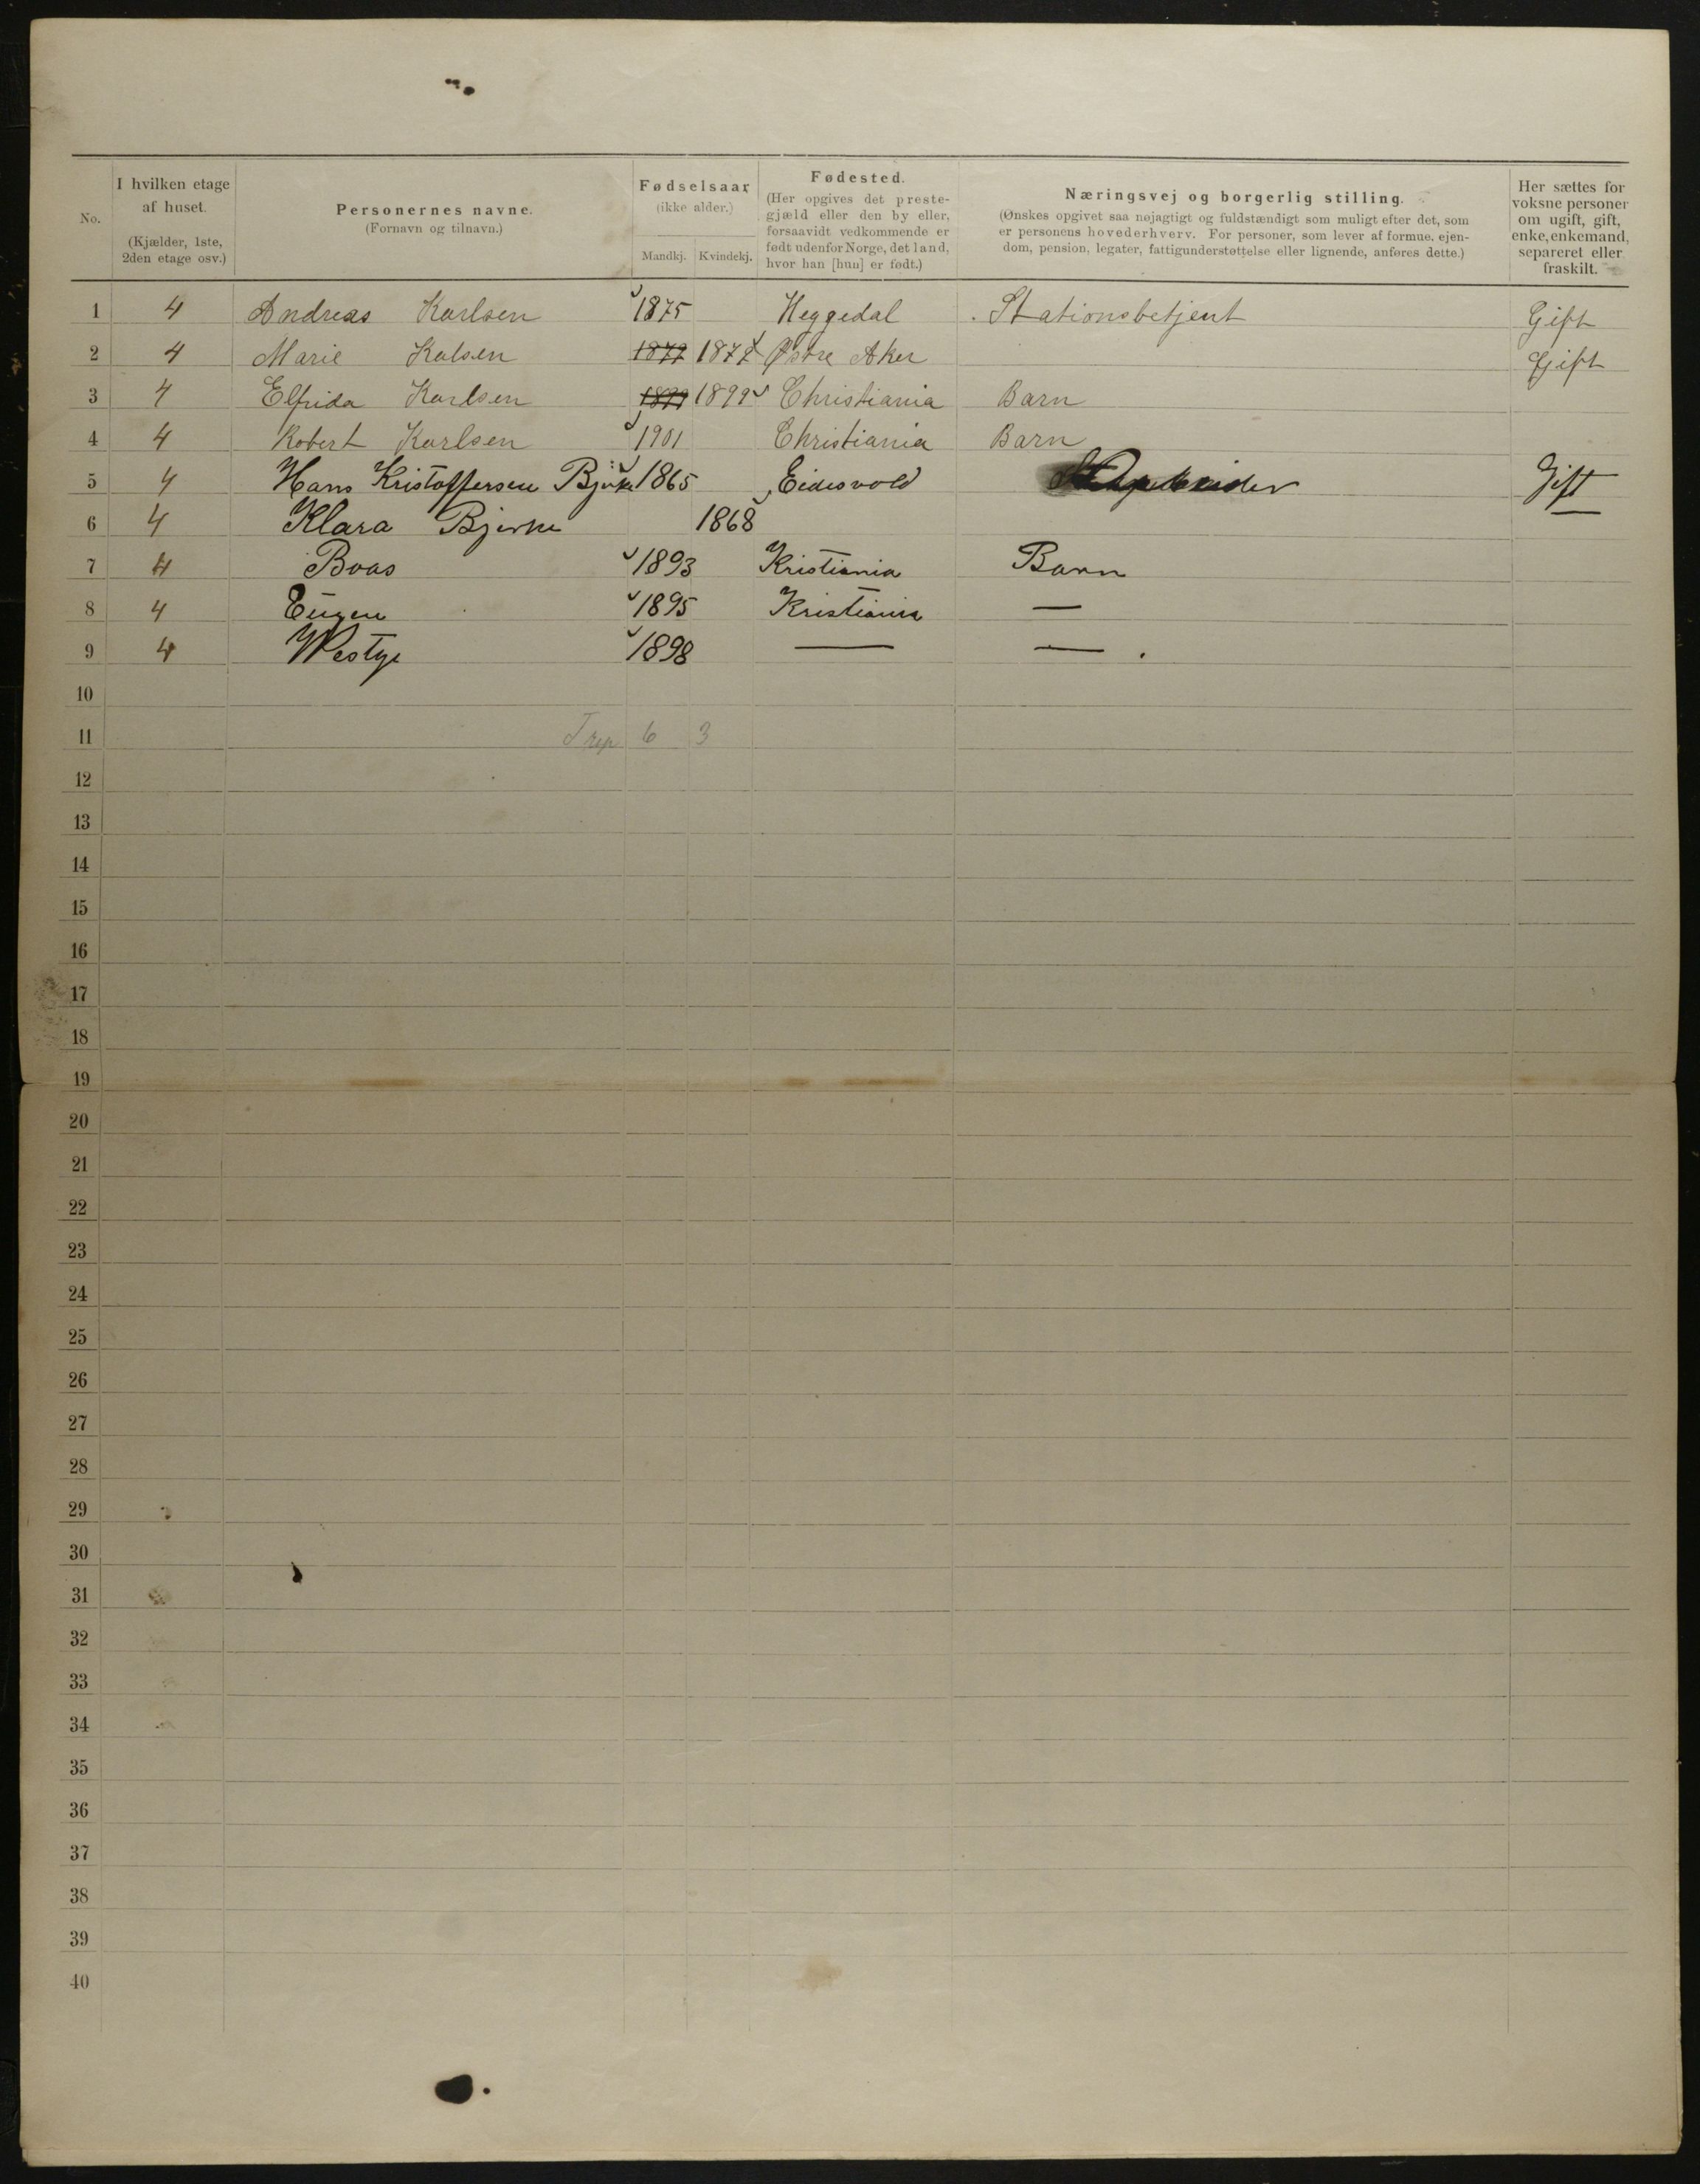 No.
I hvilken etage af huset. (Kjælder, 1ste, 2den etage osv.)
Personernes navne. (Fornavn og tilnavn.)
Fødselsaar (ikke alder.) Mandkj. Kvindekj.
Fødested. (Her opgives det prestegjæld eller den by eller, forsaavidt vedkommende er født udenfor Norge, det land, hvor han [hun] er født.)
Næringsvej og borgerlig stilling. (Ønskes opgivet saa nøjagtigt og fuldstændigt som muligt efter det, som er personens hovederhverv. For personer, som lever af formue, ejendom, pension, legater, fattigunderstøttelse eller lignende, anføres dette.)
Her sættes for voksne personer om ugift, gift, enke, enkemand, separeret eller fraskilt.
1 4 Andreas Karlsen 1875 Heggedal Stationsbetjent Gift
2 4 Marie Kalsen 1877 1877 Østre Aker Gift
3 4 Elfrida Karlsen 1899 1899 Christiania Barn
4 4 Robert Karlsen 1901 Christiania Barn
5 4 Hans Kristoffersen 1865 Eidesvold Gift
6 4 Klara Bjerke 1868
7 4 Boas 1893 Kristiania Barn
8 4 Eugen 1895 Kristiania —
9 4 Westye 1898 — —
10
11 6 3
12
13
14
15
16
17
18
19
20
21
22
23
24
25
26
27
28
29
30
31
32
33
34
35
36
37
38
39
40